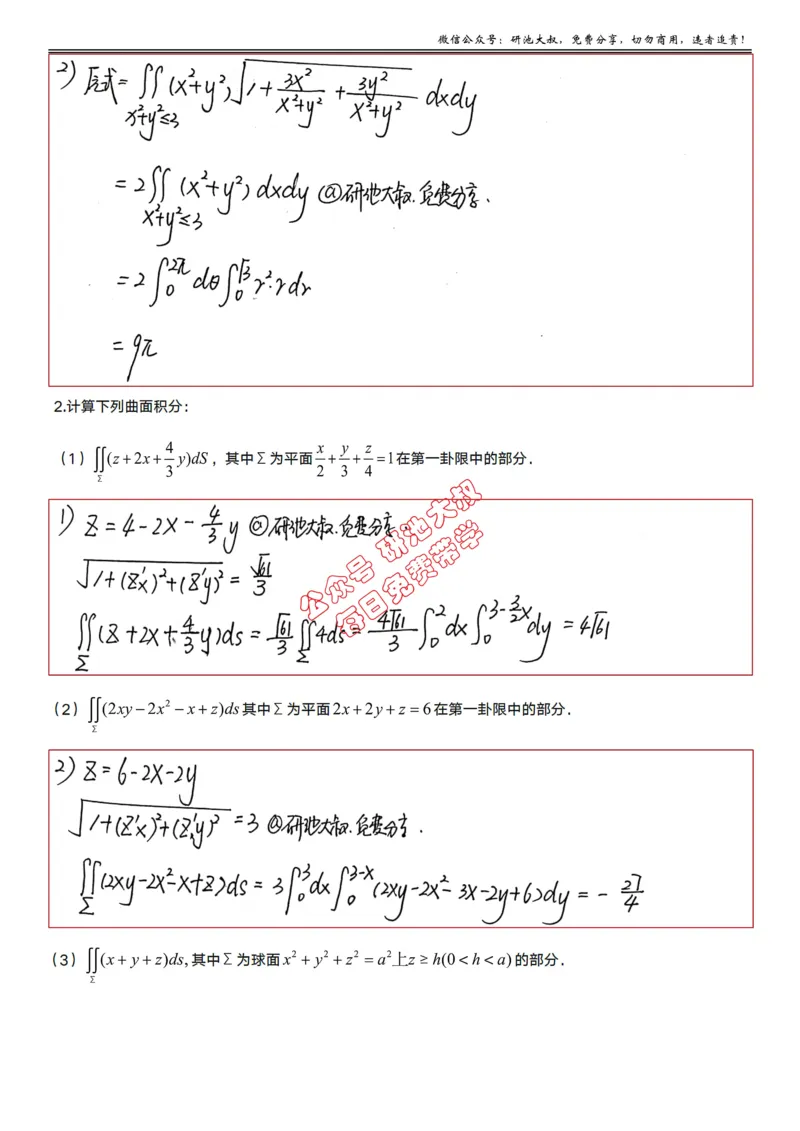 微信公众号：研池大叔，免费分享，切勿商用，违者追责！
2) 原式 = ∬_{x²+y²≤3} (x²+y²)√(1+3x²/(x²+y²)+3y²/(x²+y²)) dxdy
= 2∬_{x²+y²≤3} (x²+y²) dxdy @研池大叔.免费分享.
= 2∫₀^{2π} dθ∫₀^{√3} r²·r dr
= 9π
2.计算下列曲面积分：
（1）∬_Σ (z+2x+4/3 y)dS，其中Σ为平面 x/2+y/3+z/4=1在第一卦限中的部分.
1) z=4-2x-4/3 y @研池大叔.免费分享.
√(1+(z'x)²+(z'y)²) = √61/3
∬_Σ (z+2x+4/3 y)ds = √61/3 ∬_Σ 4ds = 4√61/3 ∫₀² dx∫₀^{3-3/2 x} dy = 4√61
公众号 研池大叔
每日免费带学
（2）∬_Σ (2xy-2x²-x+z)ds其中Σ为平面2x+2y+z=6在第一卦限中的部分.
2) z=6-2x-2y
√(1+(z'x)²+(z'y)²) =3 @研池大叔.免费分享.
∬_Σ (2xy-2x²-x+z)ds = 3∫₀³ dx∫₀^{3-x} (2xy-2x²-3x-2y+6)dy = - 27/4
（3）∬_Σ (x+y+z)ds,其中Σ为球面x²+y²+z²=a²上z≥h(0<h<a)的部分.